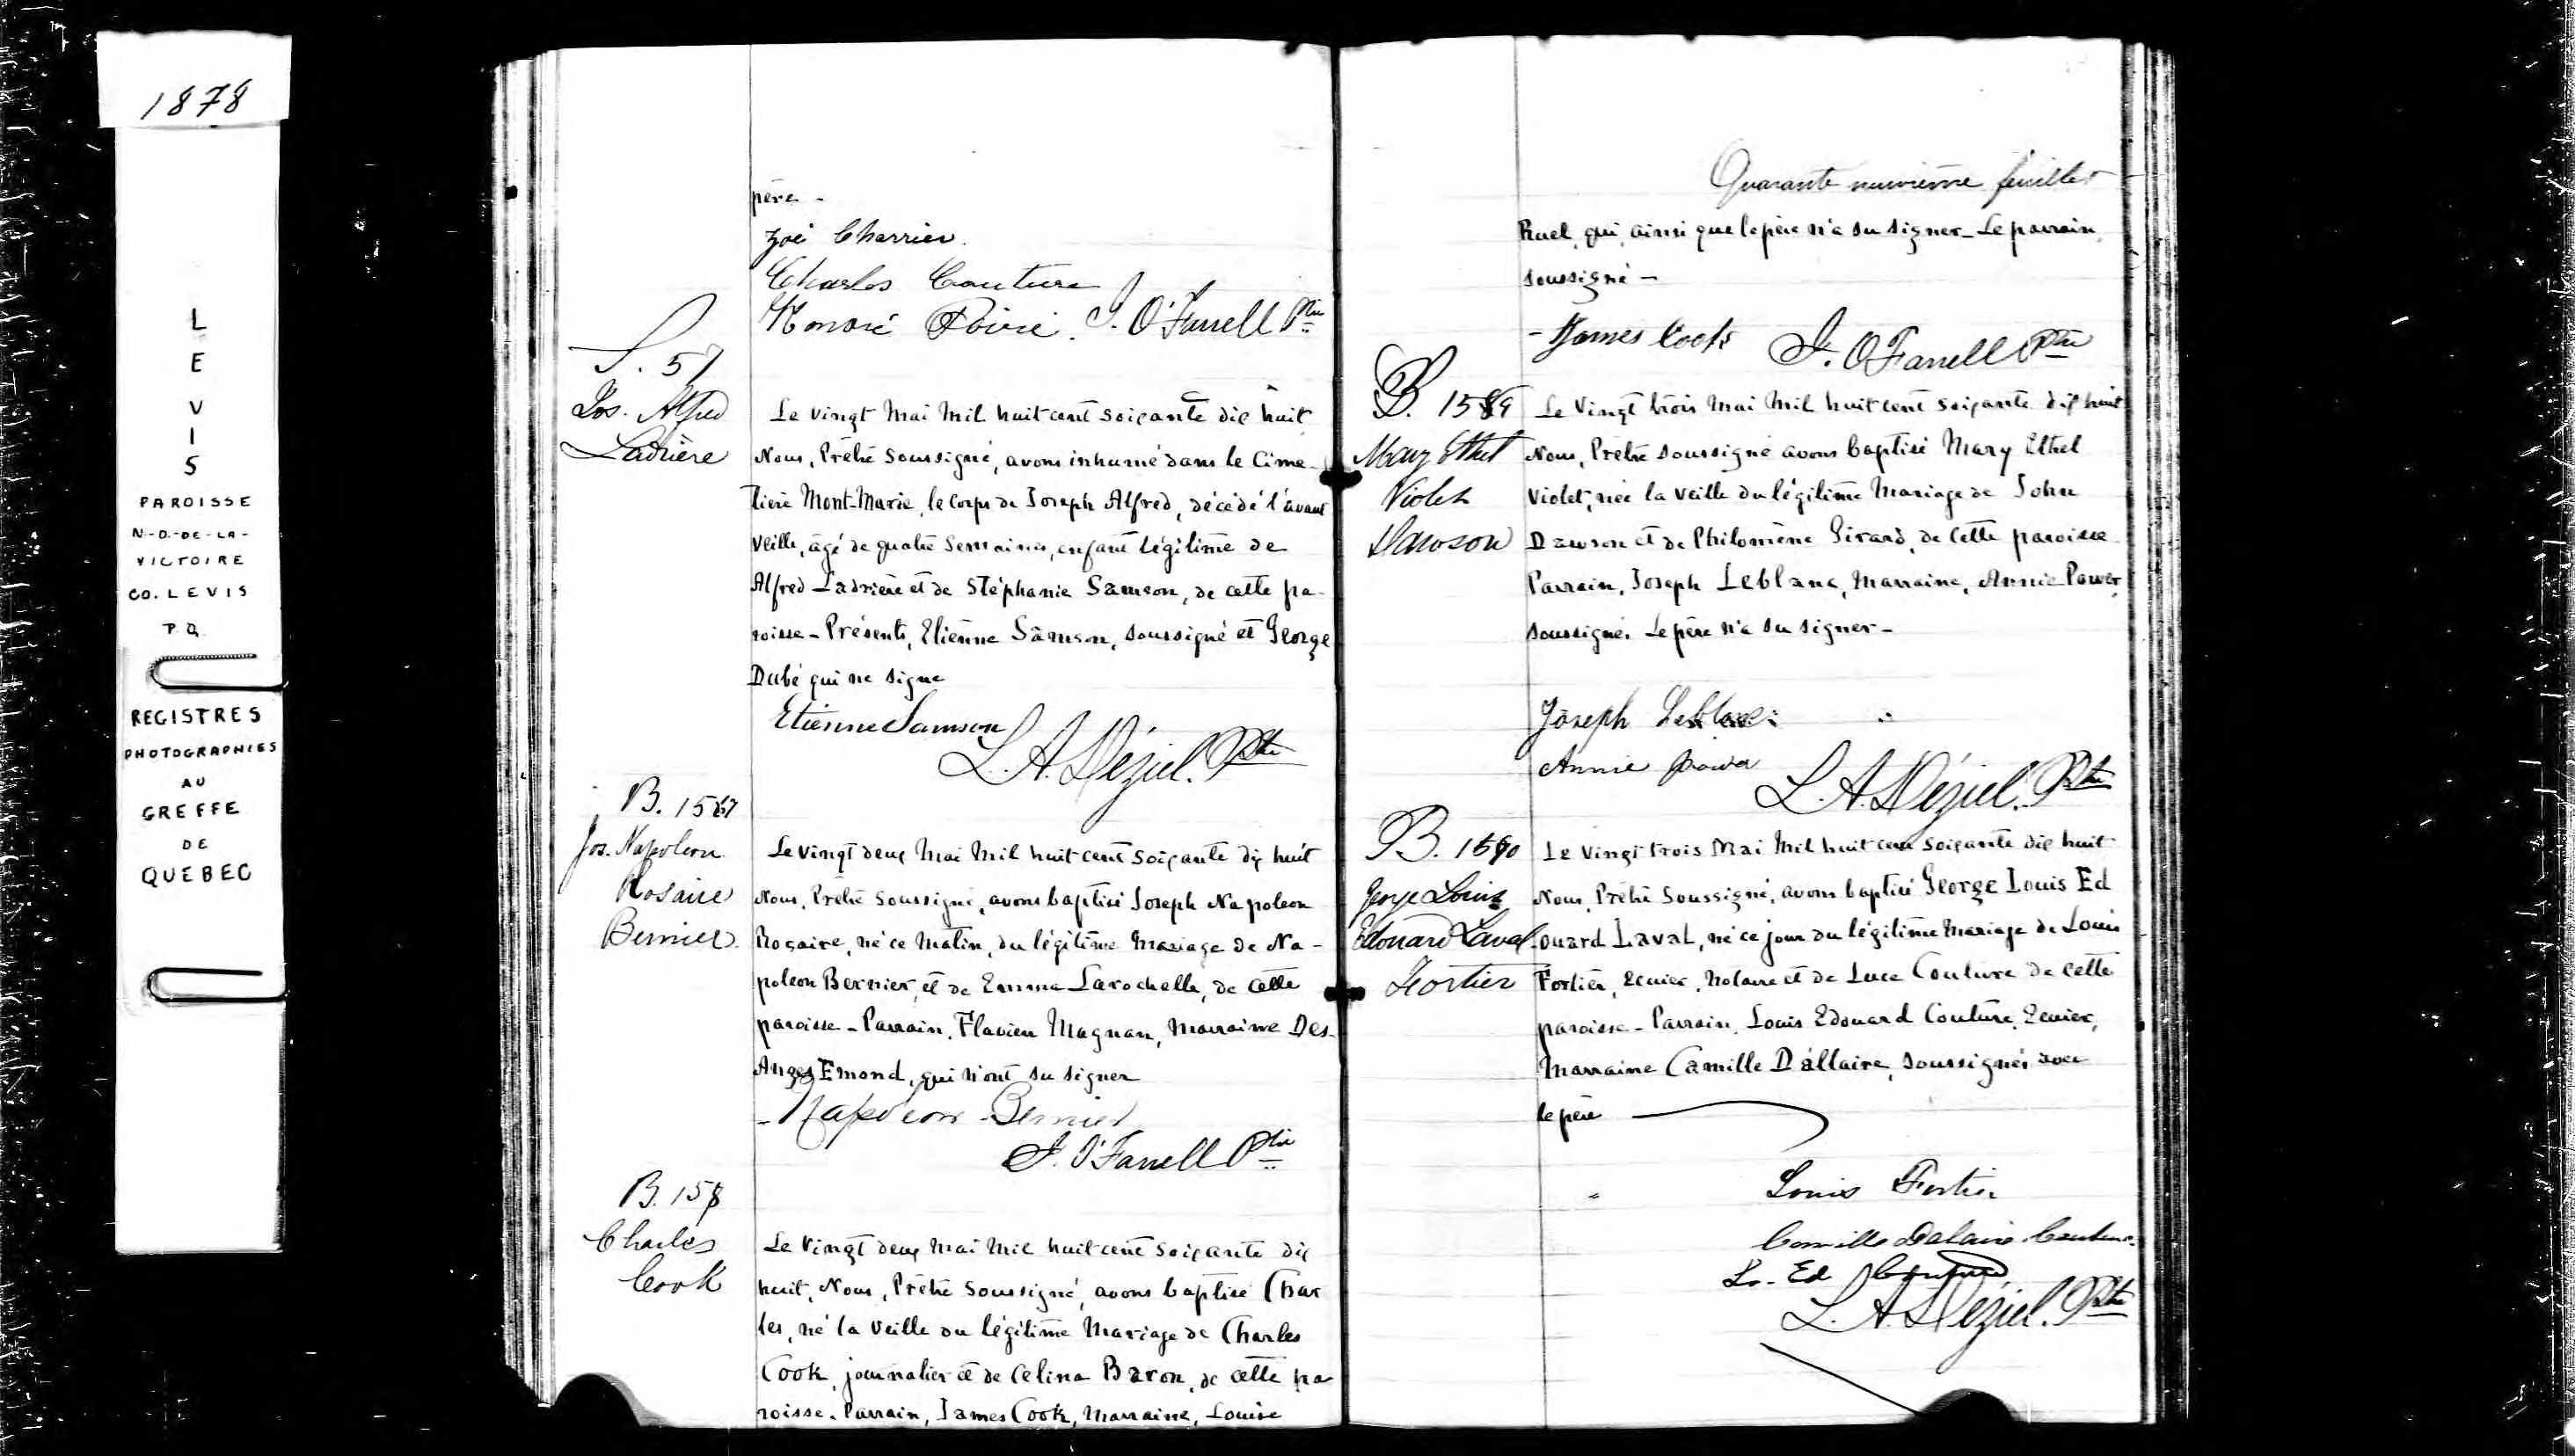 1878
L
E
V
I
S
PAROISSE
N.-D.-DE-LA-
VICTOIRE
CO. LEVIS
P.Q.
REGISTRES
PHOTOGRAPHIES
AU
GREFFE
DE
QUEBEC
père -
Zoé Charrier.
Charles Couture
Honoré Poiré. J. O'Farrell Ptre
S. 57
Jos. Alfred
Ladrière
Le vingt Mai Mil huit cent soixante dix huit
Nous, Prêtre Soussigné, avons inhumé dans le Cime-
tière Mont-Marie, le corps de Joseph Alfred, décédé l'avant
Veille, âgé de quatre Semaines, enfant légitime de
Alfred Ladrière et de Stéphanie Samson, de cette pa-
roisse - Présents, Etienne Samson, soussigné et George
Dubé qui ne signe
Etienne Samson
L. A. Déziel. Ptre
B. 157
Jos. Napoléon
Rosaire
Bernier.
Le vingt deux Mai Mil huit cent soixante dix huit
Nous, Prêtre Soussigné, avons baptisé Joseph Napoléon
Rosaire, né ce Matin, du légitime Mariage de Na-
poléon Bernier, et de Emma Larochelle, de cette
paroisse - Parrain, Flavien Magnan, Marraine Des-
Anges Emond, qui n'ont su signer
- Napoléon Bernier
J. O'Farrell Ptre
B. 158
Charles
Cook
Le Vingt deux Mai Mil huit cent soixante dix
huit, Nous, Prêtre Soussigné, avons baptisé Char
les, né la Veille du légitime Mariage de Charles
Cook, journalier et de Celina Baron, de cette pa
roisse. Parrain, James Cook, Marraine, Louise
Quarante neuvième feuillet
Ruel, qui, ainsi que le père n'a su signer - Le parrain
soussigné -
- James Cook J. O'Farrell Ptre
B. 159
Mary Ethel
Violet
Dawson
Le Vingt trois Mai Mil huit cent soixante dix huit
Nous, Prêtre soussigné avons baptisé Mary Ethel
Violet, née la veille du légitime Mariage de John
Dawson et de Philomène Girard, de cette paroisse
Parrain, Joseph Leblanc, Marraine, Annie Power,
soussignés. Le père n'a su signer -
Joseph Leblanc
Annie Power
L. A. Déziel. Ptre
B. 160
George Louis
Edouard Laval
Fortier
Le Vingt trois Mai Mil huit cent soixante dix huit
Nous, Prêtre Soussigné, avons baptisé George Louis Ed
ouard Laval, né ce jour du légitime Mariage de Louis
Fortier, Ecuier, Notaire et de Luce Couture de cette
paroisse - Parrain, Louis Edouard Couture, Ecuier,
Marraine Camille Dallaire, soussignés avec
le père
Louis Fortier
Camille Dalaire Couture
Ls. Ed Couture
L. A. Déziel. Ptre